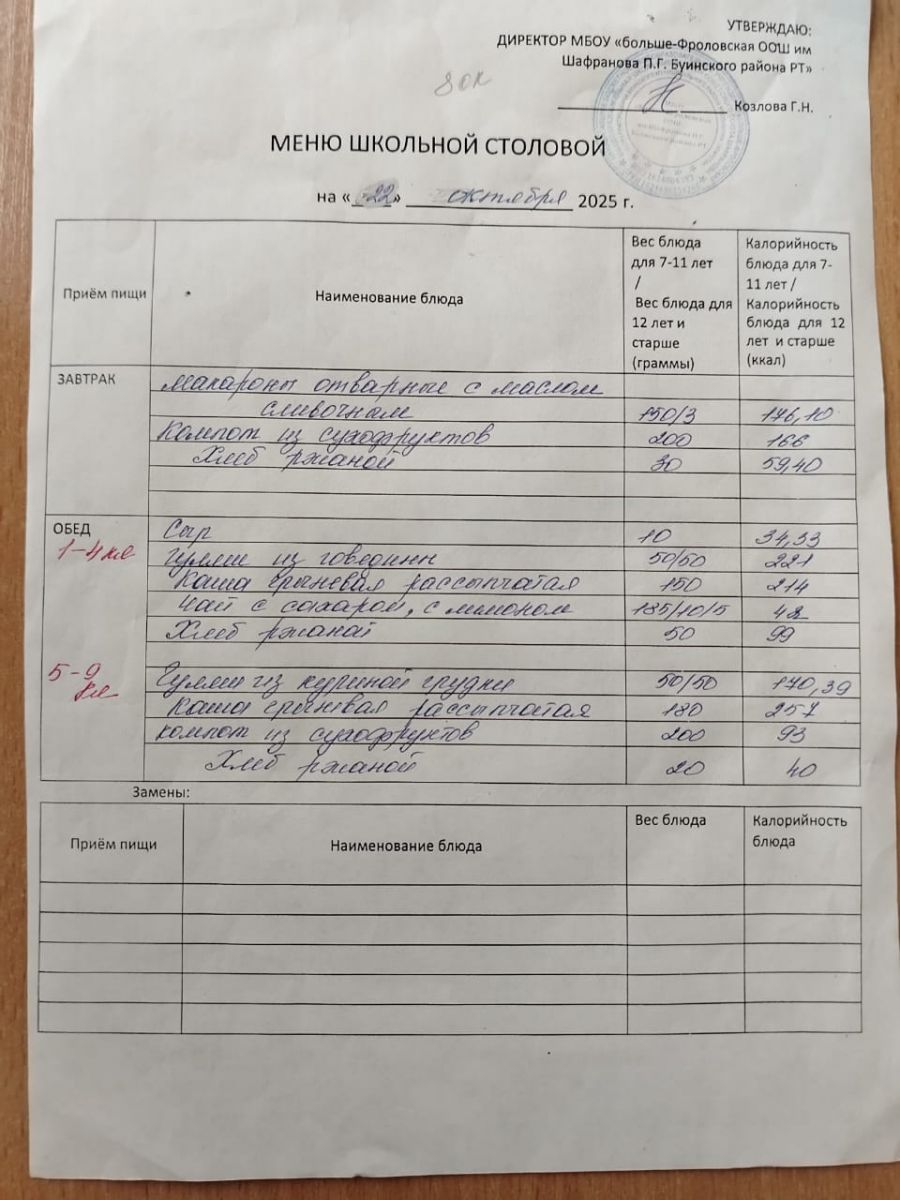 УТВЕРЖДАЮ:
ДИРЕКТОР МБОУ «больше-Фроловская ООШ им
Шафранова П.Г. Буинского района РТ»
Козлова Г.Н.
МЕНЮ ШКОЛЬНОЙ СТОЛОВОЙ
на «22» октября 2025 г.
Приём пищи
Наименование блюда
Вес блюда
для 7-11 лет
/
Вес блюда для
12 лет и
старше
(граммы)
Калорийность
блюда для 7-
11 лет /
Калорийность
блюда для 12
лет и старше
(ккал)
ЗАВТРАК
макароны отварные с маслом
сливочнам 150/3 176,10
Компот из сухофруктов 200 166
Хлеб ржаной 30 59,40
ОБЕД
1-4 кл
Сыр 10 34,33
Гуляш из говедини 50/50 221
Каша гречневая рассыпчатая 150 214
чай с сахаром, с лимоном 185/10/5 42
Хлеб ржаной 50 99
5-9
кл
Гуляш из куриной грудки 50/50 170,39
Каша гречневая рассыпчатая 180 257
компот из сухофруктов 200 93
Хлеб ржаной 20 40
Замены:
Приём пищи
Наименование блюда
Вес блюда
Калорийность
блюда